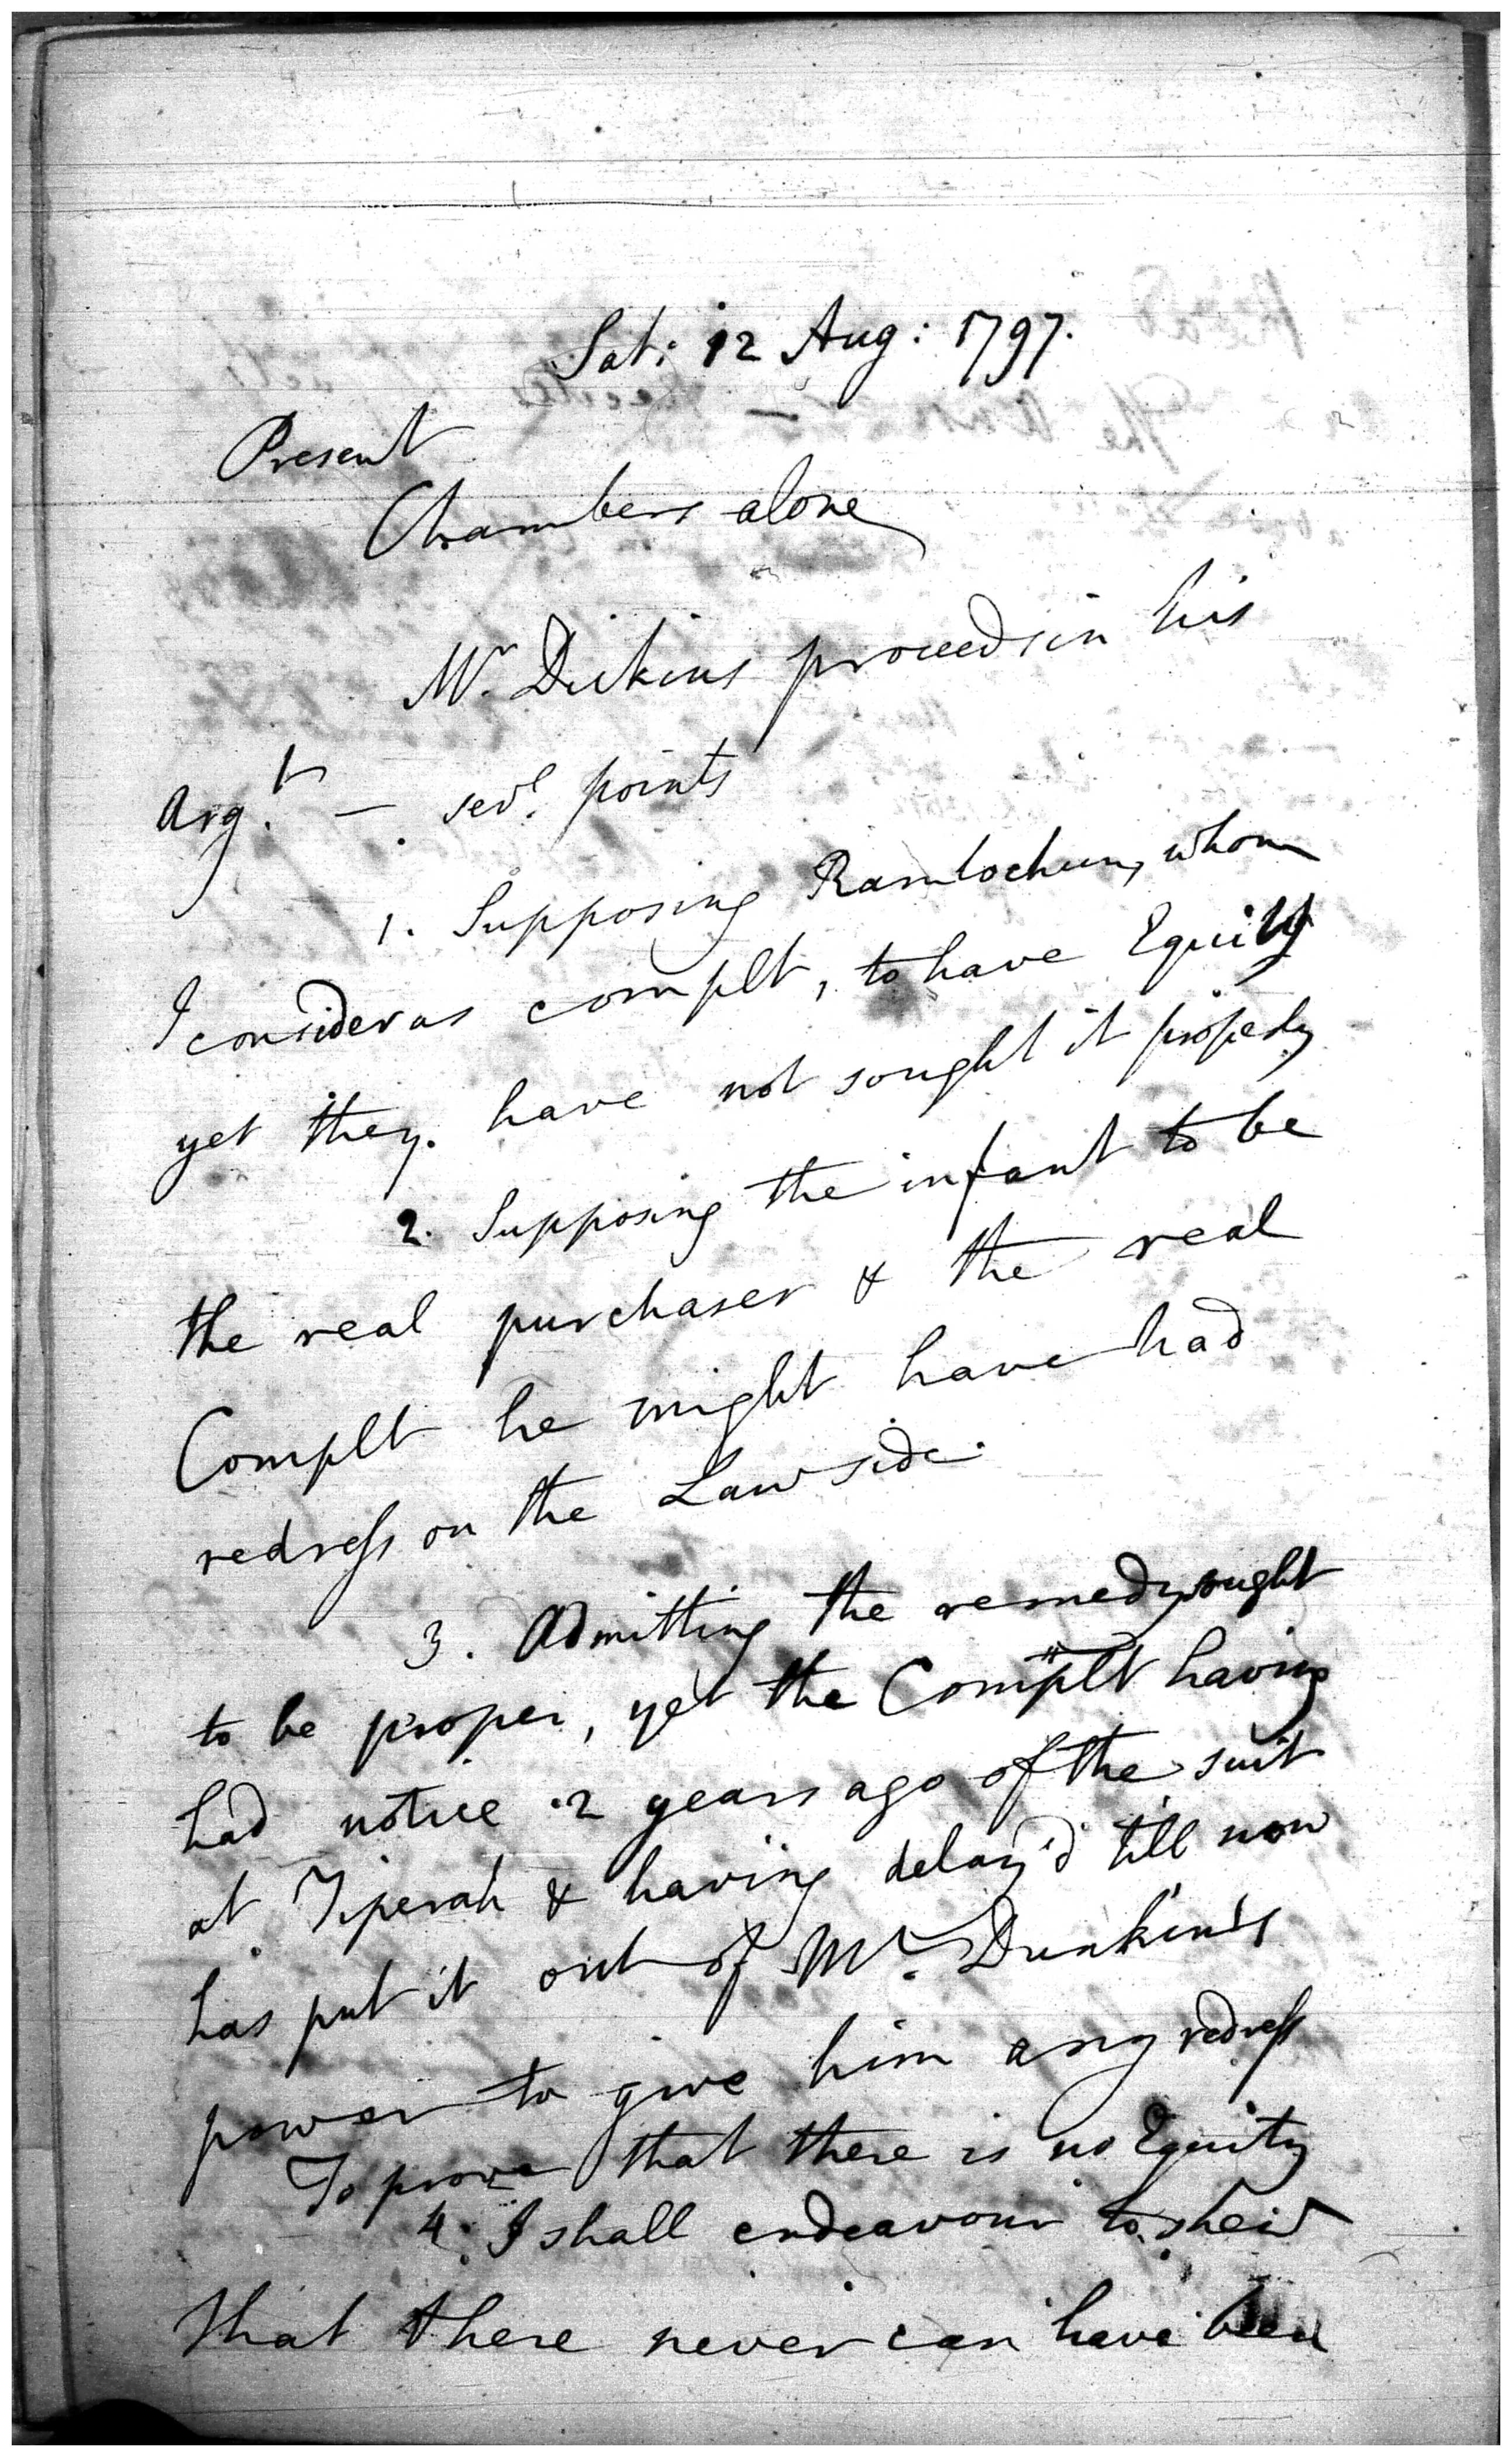 Sat: 12 Aug: 1797.
Present
Chambers alone
Mr. Dickins proceeds in his
Argt. — sevl. points
1. Supposing Ramlochun, whom
I consider as complt, to have Equity
yet they have not sought it properly
2. Supposing the infant to be
the real purchaser & the real
Complt he might have had
redress on the Law side.
3. Admitting the remedy sought
to be proper, yet the Complt having
had notice 2 years ago of the suit
at Tiperah & having delay'd till now
has put it out of Mr. Dunkin's
power to give him any redress
To prove that there is no Equity
4. I shall endeavour to shew
that there never can have been